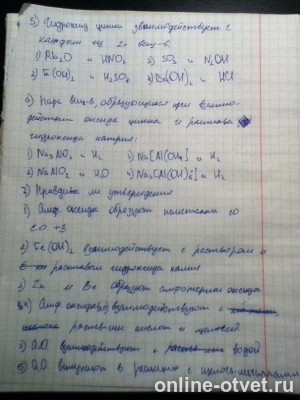 5) Гидроксид цинка взаимодействует с
каждым из 2х вещ-в.
1) Rb₂O и HNO₃ 3) SO₃ и NaOH
2) Fe(OH)₂ и H₂SO₄ 4) Ba(OH)₂ и HCl
6) Пара вещ-в, образующихся при взаимо-
действии оксида цинка и раствора
гидроксида натрия:
1) Na₃AlO₃ и H₂ 3) Na[Al(OH)₄] и H₂
2) NaAlO₂ и H₂O 4) Na₃[Al(OH)₆] и H₂
7) Правдивы ли утверждения
1) Амф. оксиды образуют металлы со
с.о. +3
2) Fe(OH)₂ взаимодействует с раствором и
раствором гидроксида калия
3) Zn и Be образуют амфотерные оксиды
4) Амф. оксиды взаимодействуют с
раств-ами кислот и щелочей
5) А.О. взаимодействуют с водой
6) А.О. вступают в реакцию с
online-otvet.ru